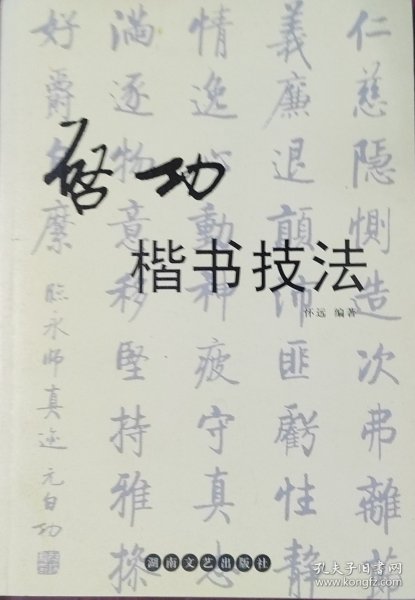 仁慈隱惻造次弗離節
義廉退顛沛匪虧性靜
情逸心動神疲守真志
滿逐物意移堅持雅操
好爵自縻
臨永師真迹 元白功
启功
楷书技法
怀远 编著
湖南文艺出版社
孔夫子旧书网